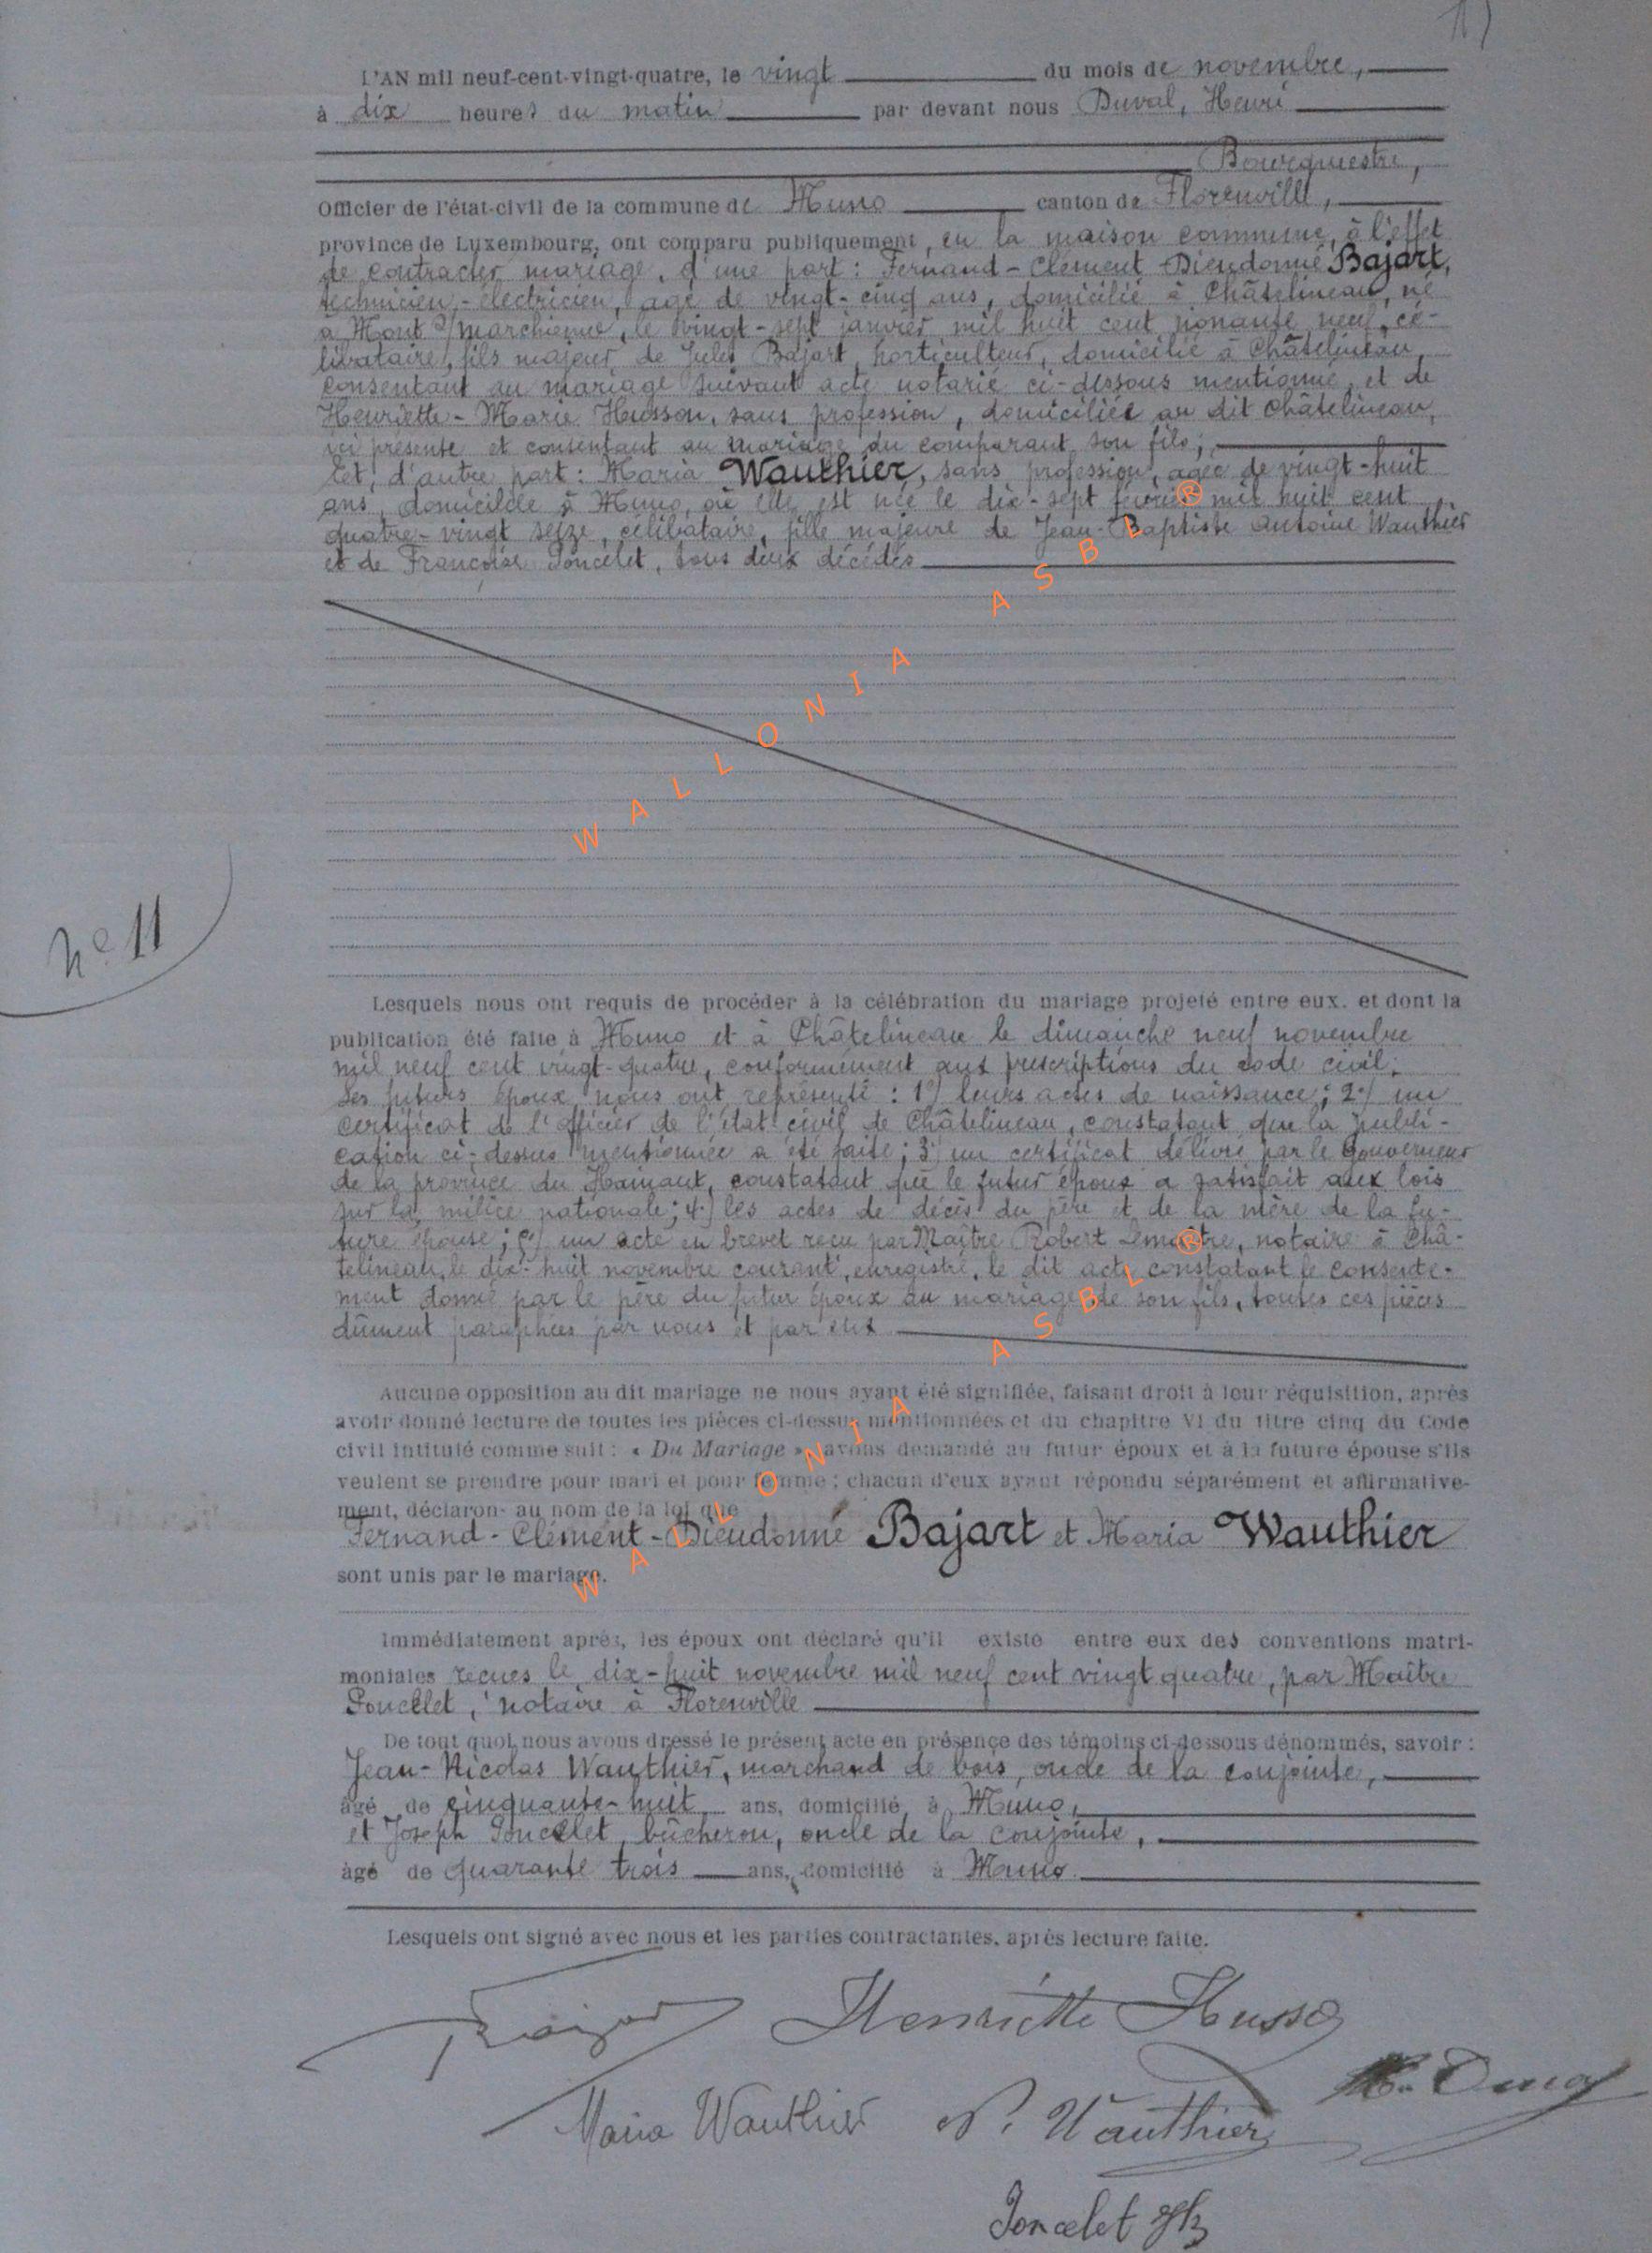 L'AN mil neuf-cent-vingt-quatre, le vingt du mois de novembre,
à dix heures du matin par devant nous Duval, Henri
Bourgmestre,
Officier de l'état-civil de la commune de Muno canton de Florenville,
province de Luxembourg, ont comparu publiquement, en la maison commune, à l'effet
de contracter mariage, d'une part: Fernand-Clément Dieudonné Bajart,
technicien-électricien, âgé de vingt-cinq ans, domicilié à Châtelineau, né
à Mont s/marchienne, le vingt-sept janvier mil huit cent nonante neuf, cé-
libataire, fils majeur de Jules Bajart, horticulteur, domicilié à Châtelineau,
consentant au mariage suivant acte notarié ci-dessous mentionné, et de
Henriette-Marie Husson, sans profession, domiciliée au dit Châtelineau,
ici présente et consentant au mariage du comparant son fils;
Et, d'autre part: Maria Wauthier, sans profession, agée de vingt-huit
ans, domiciliée à Muno, où elle est née le dix-sept février mil huit cent
quatre-vingt seize, célibataire, fille majeure de Jean-Baptiste Antoine Wauthier
et de Françoise Poncelet, tous deux décédés
Nº 11
Lesquels nous ont requis de procéder à la célébration du mariage projeté entre eux. et dont la
publication été faite à Muno et à Châtelineau le dimanche neuf novembre
mil neuf cent vingt-quatre, conformément aux prescriptions du code civil.
Les futurs époux nous ont représenté : 1º) leurs actes de naissance; 2º) un
certificat de l'officier de l'état civil de Châtelineau, constatant que la publi-
cation ci-dessus mentionnée a été faite; 3º) un certificat délivré par le Gouverneur
de la province du Hainaut, constatant que le futur époux a satisfait aux lois
sur la milice nationale; 4º) les actes de décès du père et de la mère de la fu-
ture épouse; 5º) un acte en brevet reçu par Maître Robert Lemaître, notaire à Châ-
telineau, le dix-huit novembre courant, enregistré, le dit acte constatant le consente-
ment donné par le père du futur époux au mariage de son fils, toutes ces pièces
dûment paraphées par nous et par eux
Aucune opposition au dit mariage ne nous ayant été signifiée, faisant droit à leur réquisition, après
avoir donné lecture de toutes les pièces ci-dessus mentionnées et du chapitre VI du titre cinq du Code
civil intitulé comme suit : « Du Mariage », avons demandé au futur époux et à la future épouse s'ils
veulent se prendre pour mari et pour femme ; chacun d'eux ayant répondu séparément et affirmative-
ment, déclarons au nom de la loi que
Fernand-Clément-Dieudonné Bajart et Maria Wauthier
sont unis par le mariage.
Immédiatement après, les époux ont déclaré qu'il existe entre eux des conventions matri-
moniales reçues le dix-huit novembre mil neuf cent vingt quatre, par Maître
Poncelet, notaire à Florenville
De tout quoi nous avons dressé le présent acte en présence des témoins ci-dessous dénommés, savoir :
Jean-Nicolas Wauthier, marchand de bois, oncle de la conjointe,
âgé de cinquante-huit ans, domicilié à Muno,
et Joseph Poncelet, bûcheron, oncle de la conjointe,
âgé de quarante trois ans, domicilié à Muno.
Lesquels ont signé avec nous et les parties contractantes, après lecture faite.
Henriette Husso
Maria Wauthier N. Wauthier
Poncelet
WALLONIA ASBL ®
WALLONIA ASBL ®